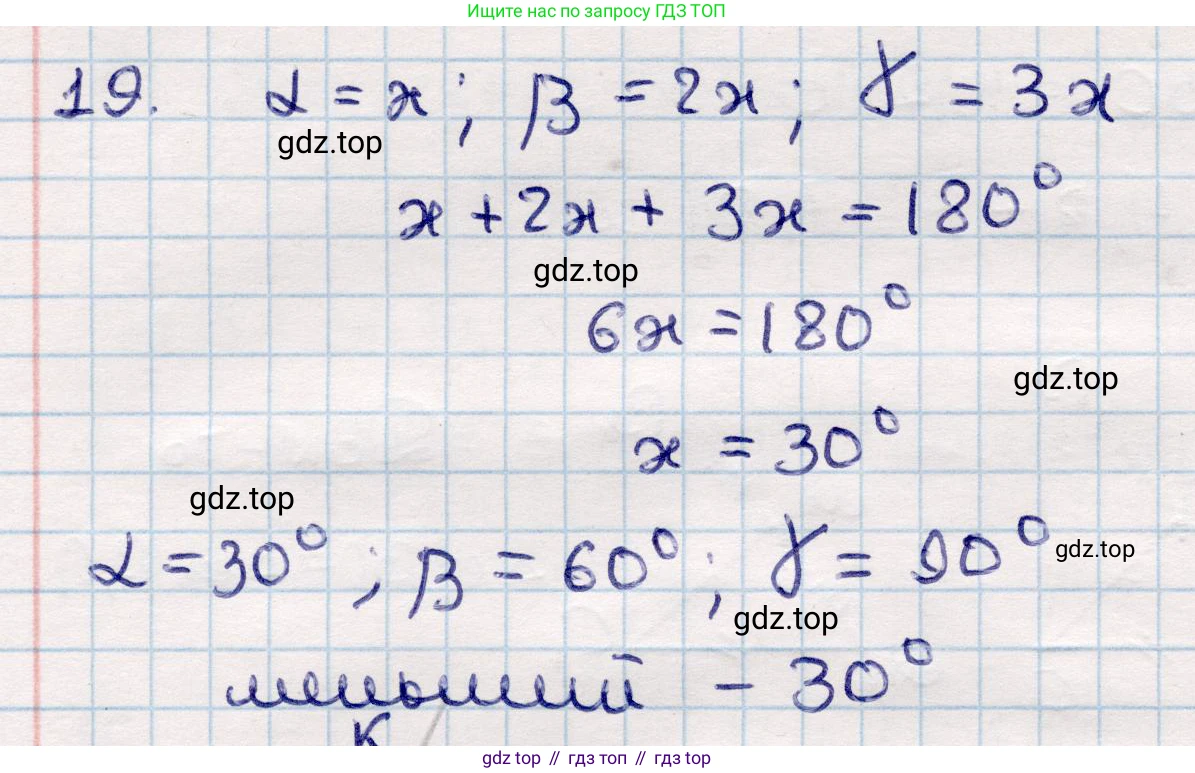 Ищите нас по запросу ГДЗ ТОП
19. α = x ; β = 2x ; γ = 3x
gdz.top
x + 2x + 3x = 180°
gdz.top
6x = 180°
gdz.top
x = 30°
gdz.top
α = 30° ; β = 60° ; γ = 90°
gdz.top
gdz.top
меньший – 30°
К
gdz.top // гдз топ // гдз.top